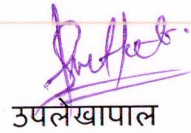 उपलेखापाल